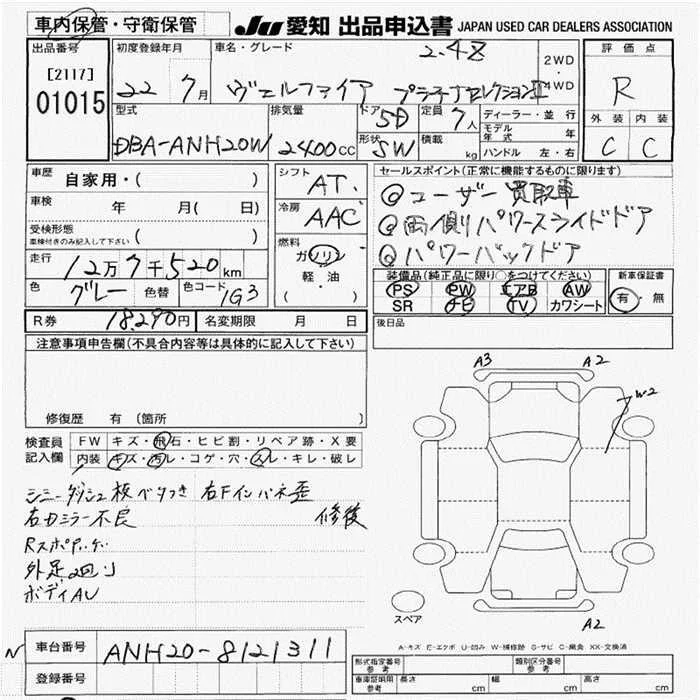 車内保管・守衛保管
JU 愛知 出品申込書 JAPAN USED CAR DEALERS ASSOCIATION
出品番号
[2117]
01015
初度登録年月
22 7月
車名・グレード
2.4Z
ヴェルファイア プラチナセレクションⅡ
2WD
・
4WD
評価点
R
外装 内装
C C
型式
DBA-ANH20W
排気量
2400cc
ドア
5D
形状
SW
定員
7人
積載
kg
ディーラー・並行
モデル年式 年
ハンドル 左・右
車歴 自家用・( )
車検 年 月( 日)
受検形態
車検付きのみ記入して下さい ( )
走行 12万7千520km
色 グレー 色替 色コード 1G3
シフト AT.
冷房 AAC
燃料
ガソリン
軽・油
( )
セールスポイント(正常に機能するものに限ります)
◎ユーザー買取車
◎両側パワースライドドア
◎パワーバックドア
装備品(純正品に限り○をつけてください) 新車保証書
PS PW エアB AW 有・無
SR ナビ TV カワシート
R券 18,290円 名変期限 月 日
後日品
注意事項申告欄(不具合内容等は具体的に記入して下さい)
修復歴 有 〔箇所 〕
検査員
記入欄
FW キズ・飛石・ヒビ割・リペア跡・X要
内装 キズ・汚レ・コゲ・穴・スレ・キレ・破レ
シミー ダッシュ板ベタつき 右Fインパネ歪
右ドミラー不良 修後
外足回り
ボディAU
A3 A2
W2
スペア
A2
A-キズ E-エクボ U-凹み W-補修跡 S-サビ C-腐食 XX-交換済
車台番号 ANH20-8121311
登録番号
形式指定番号 参考
類別区分番号 参考
車庫証明用 参考 長さ cm 幅 cm 高さ cm